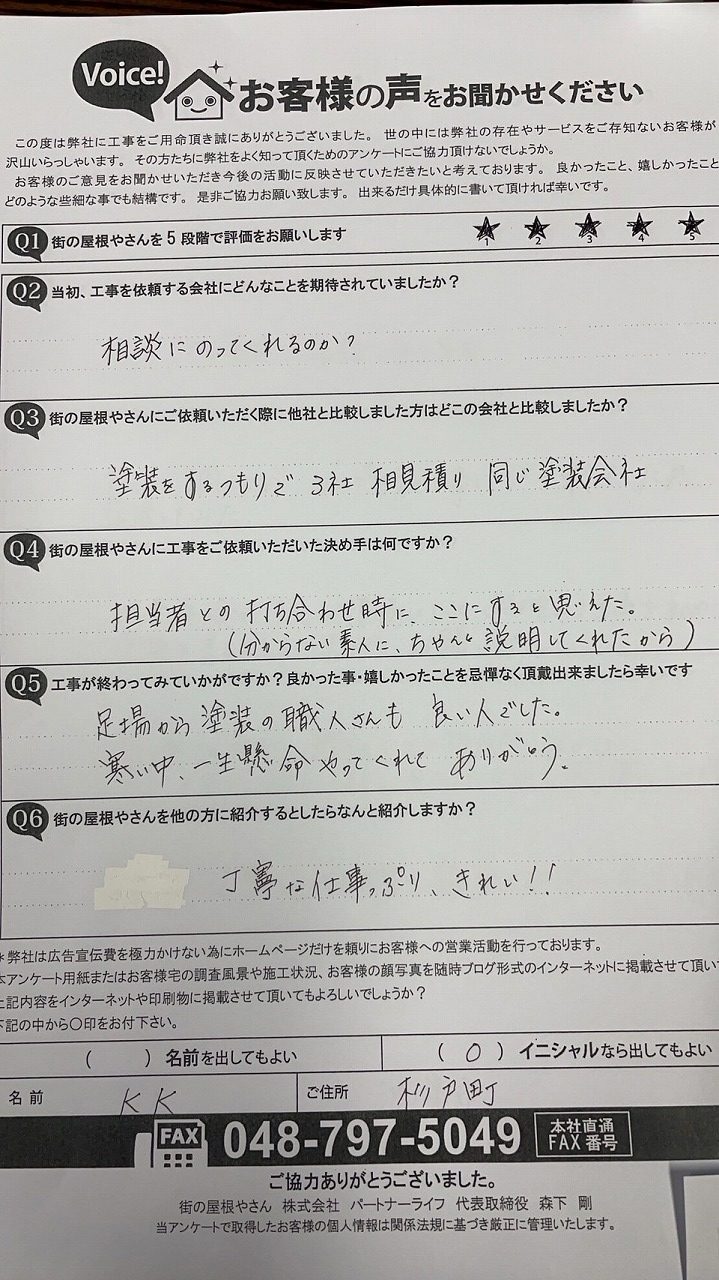 Voice!
お客様の声をお聞かせください
この度は弊社に工事をご用命頂き誠にありがとうございました。世の中には弊社の存在やサービスをご存知ないお客様が
沢山いらっしゃいます。その方たちに弊社をよく知って頂くためのアンケートにご協力頂けないでしょうか。
お客様のご意見をお聞かせいただき今後の活動に反映させていただきたいと考えております。良かったこと、嬉しかったこと
どのような些細な事でも結構です。是非ご協力お願い致します。出来るだけ具体的に書いて頂ければ幸いです。
Q1 街の屋根やさんを5段階で評価をお願いします ★1 ★2 ★3 ★4 ★5
Q2 当初、工事を依頼する会社にどんなことを期待されていましたか？
相談にのってくれるのか？
Q3 街の屋根やさんにご依頼いただく際に他社と比較しました方はどこの会社と比較しましたか？
塗装をするつもりで 3社 相見積り 同じ塗装会社
Q4 街の屋根やさんに工事をご依頼いただいた決め手は何ですか？
担当者との打ち合わせ時に、ここにすると思えた。
(分からない素人に、ちゃんと説明してくれたから)
Q5 工事が終わってみていかがですか？良かった事・嬉しかったことを忌憚なく頂戴出来ましたら幸いです
足場から塗装の職人さんも 良い人でした。
寒い中、一生懸命やってくれて ありがとう。
Q6 街の屋根やさんを他の方に紹介するとしたらなんと紹介しますか？
丁寧な仕事っぷり、きれい！！
＊弊社は広告宣伝費を極力かけない為にホームページだけを頼りにお客様への営業活動を行っております。
本アンケート用紙またはお客様宅の調査風景や施工状況、お客様の顔写真を随時ブログ形式のインターネットに掲載させて頂いて
上記内容をインターネットや印刷物に掲載させて頂いてもよろしいでしょうか？
下記の中から〇印をお付下さい。
（　）名前を出してもよい （○）イニシャルなら出してもよい
名前 KK ご住所 杉戸町
FAX 048-797-5049 本社直通 FAX番号
ご協力ありがとうございました。
街の屋根やさん 株式会社 パートナーライフ 代表取締役 森下 剛
当アンケートで取得したお客様の個人情報は関係法規に基づき厳正に管理いたします。